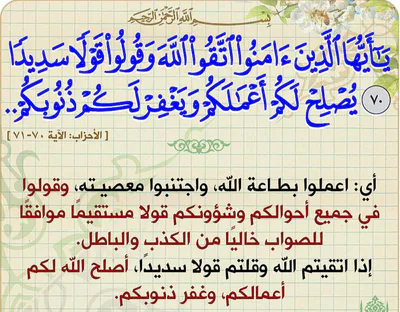 بِسْمِ اللَّهِ الرَّحْمَٰنِ الرَّحِيمِ
يَـٰٓأَيُّهَا ٱلَّذِينَ ءَامَنُوا۟ ٱتَّقُوا۟ ٱللَّهَ وَقُولُوا۟ قَوْلًا سَدِيدًا
٧٠ يُصْلِحْ لَكُمْ أَعْمَـٰلَكُمْ وَيَغْفِرْ لَكُمْ ذُنُوبَكُمْ..
[ الأحزاب: الآية ٧٠-٧١ ]
أي: اعملوا بطـاعة الله، واجتنبوا معصيتـه، وقولوا
في جميع أحوالكم وشؤونكم قولا مستقيمًا موافقًا
للصواب خاليًا من الكذب والباطل.
إذا اتقيتم الله وقلتم قولا سديدًا، أصلح الله لكم
أعمالكم، وغفر ذنوبكم.